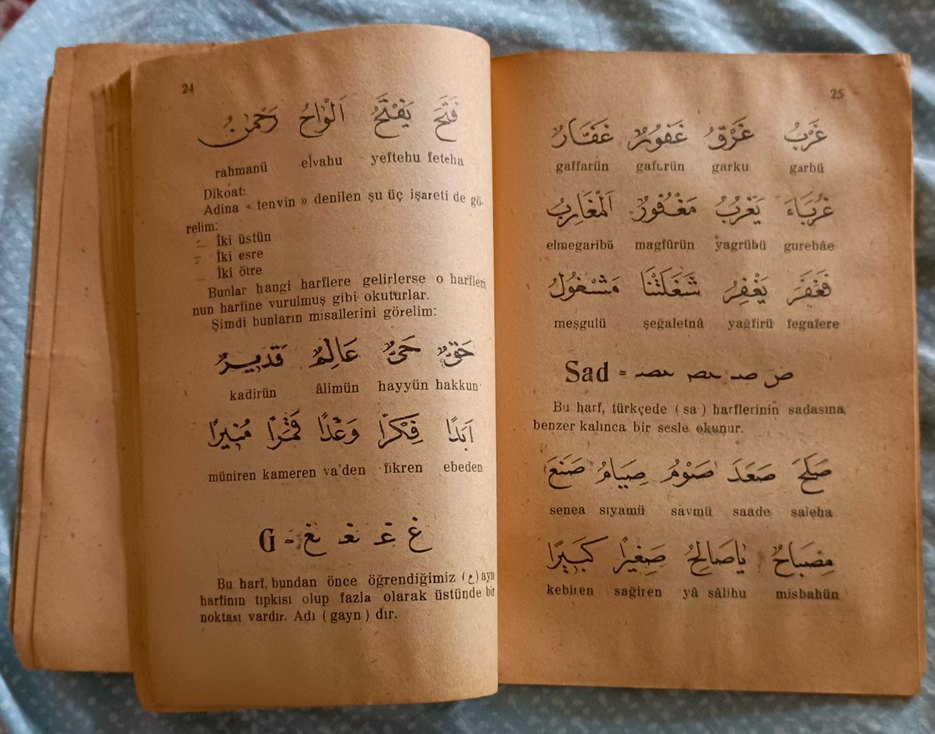 24
فَتَحَ يَفْتَحُ اَلْوَاحُ رَحْمٰنُ
rahmanü elvahu yeftehu feteha
Dikoat:
Adina « tenvin » denilen şu üç işareti de gö-
relim:
İki üstün
İki esre
İki ötre
Bunlar hangi harflere gelirlerse o harfleri
nun harfine vurulmuş gibi okuturlar.
Şimdi bunların misallerini görelim:
حَقٌّ حَىٌّ عَالِمٌ قَدِيرٌ
kadirün âlimün hayyün hakkun
اَبَدًا فِكْرًا وَعْدًا قَمَرًا مُنِيرًا
müniren kameren va'den fikren ebeden
G = غ غـ ـغـ ـغ
Bu harf, bundan önce öğrendiğimiz (ع) ayn
harfinin tıpkısı olup fazla olarak üstünde bir
noktası vardır. Adı ( gayn ) dır.
25
غَرْبُ غَرْقُ غَفُورٌ غَفَّارٌ
gaffarün gafurün garku garbü
غُرَبَاءَ يَغْرُبُ مَغْفُورٌ اَلْمَغَارِبُ
elmegaribü magfûrün yagrübü gurebâe
فَغَفَرَ يَغْفِرُ شَغَلَتْنَا مَشْغُولُ
meşgulü şeğaletnâ yağfirü fegafere
Sad = ص صـ ـصـ ـص
Bu harf, türkçede ( sa ) harflerinin sadasına
benzer kalınca bir sesle okunur.
صَلَحَ صَعَدَ صَوْمُ صِيَامُ صَنَعَ
senea sıyamü savmü saade saleha
مِصْبَاحٌ يَاصَالِحُ صَغِيرًا كَبِيرًا
kebiren sağiren yâ sâlihu misbahün